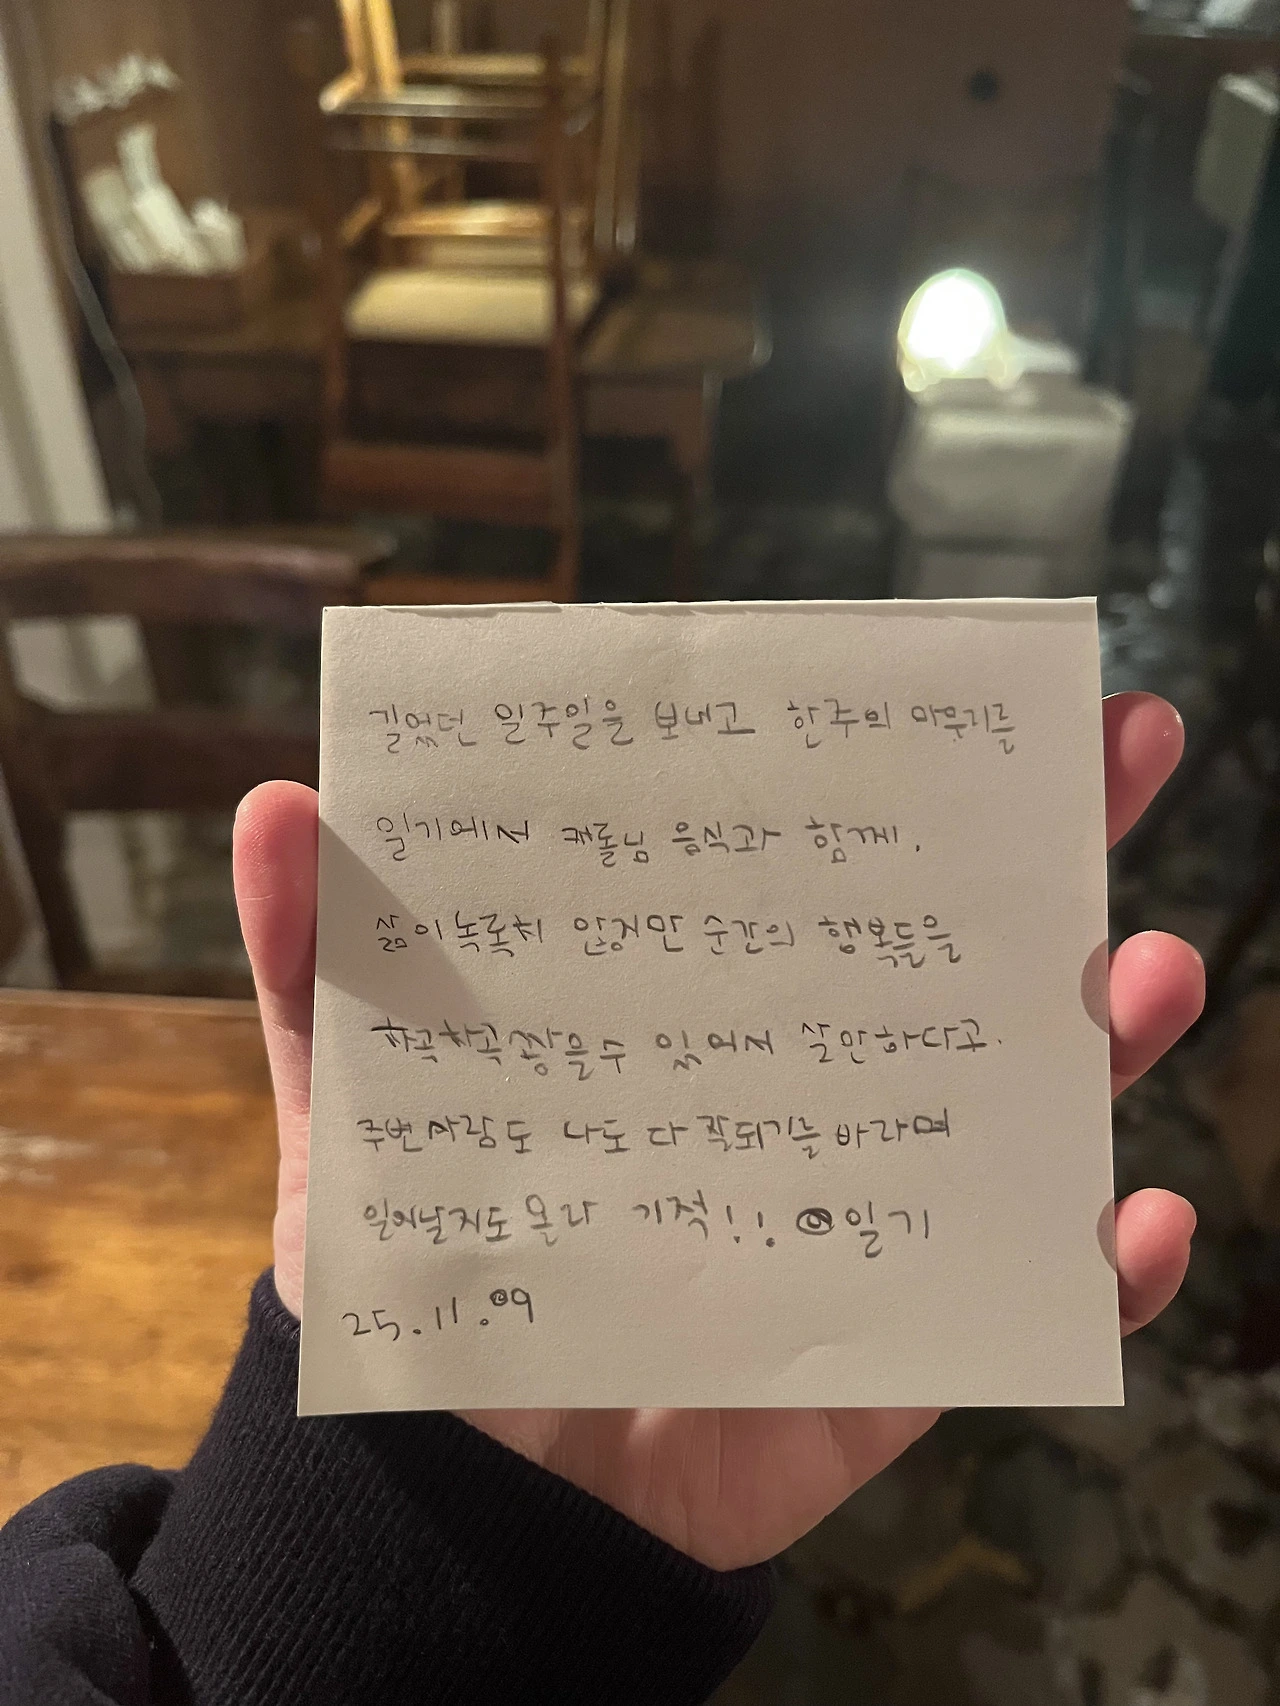 길었던 일주일을 보내고 한주의 마무리를
일기에서 캐롤님 음식과 함께.
삶이 녹록치 않지만 순간의 행복들을
차곡차곡 쫒을수 있어서 살만하다고.
주변사람도 나도 다 잘되기를 바라며
일어날지도 몰라 기적!! 일기
25.11.09